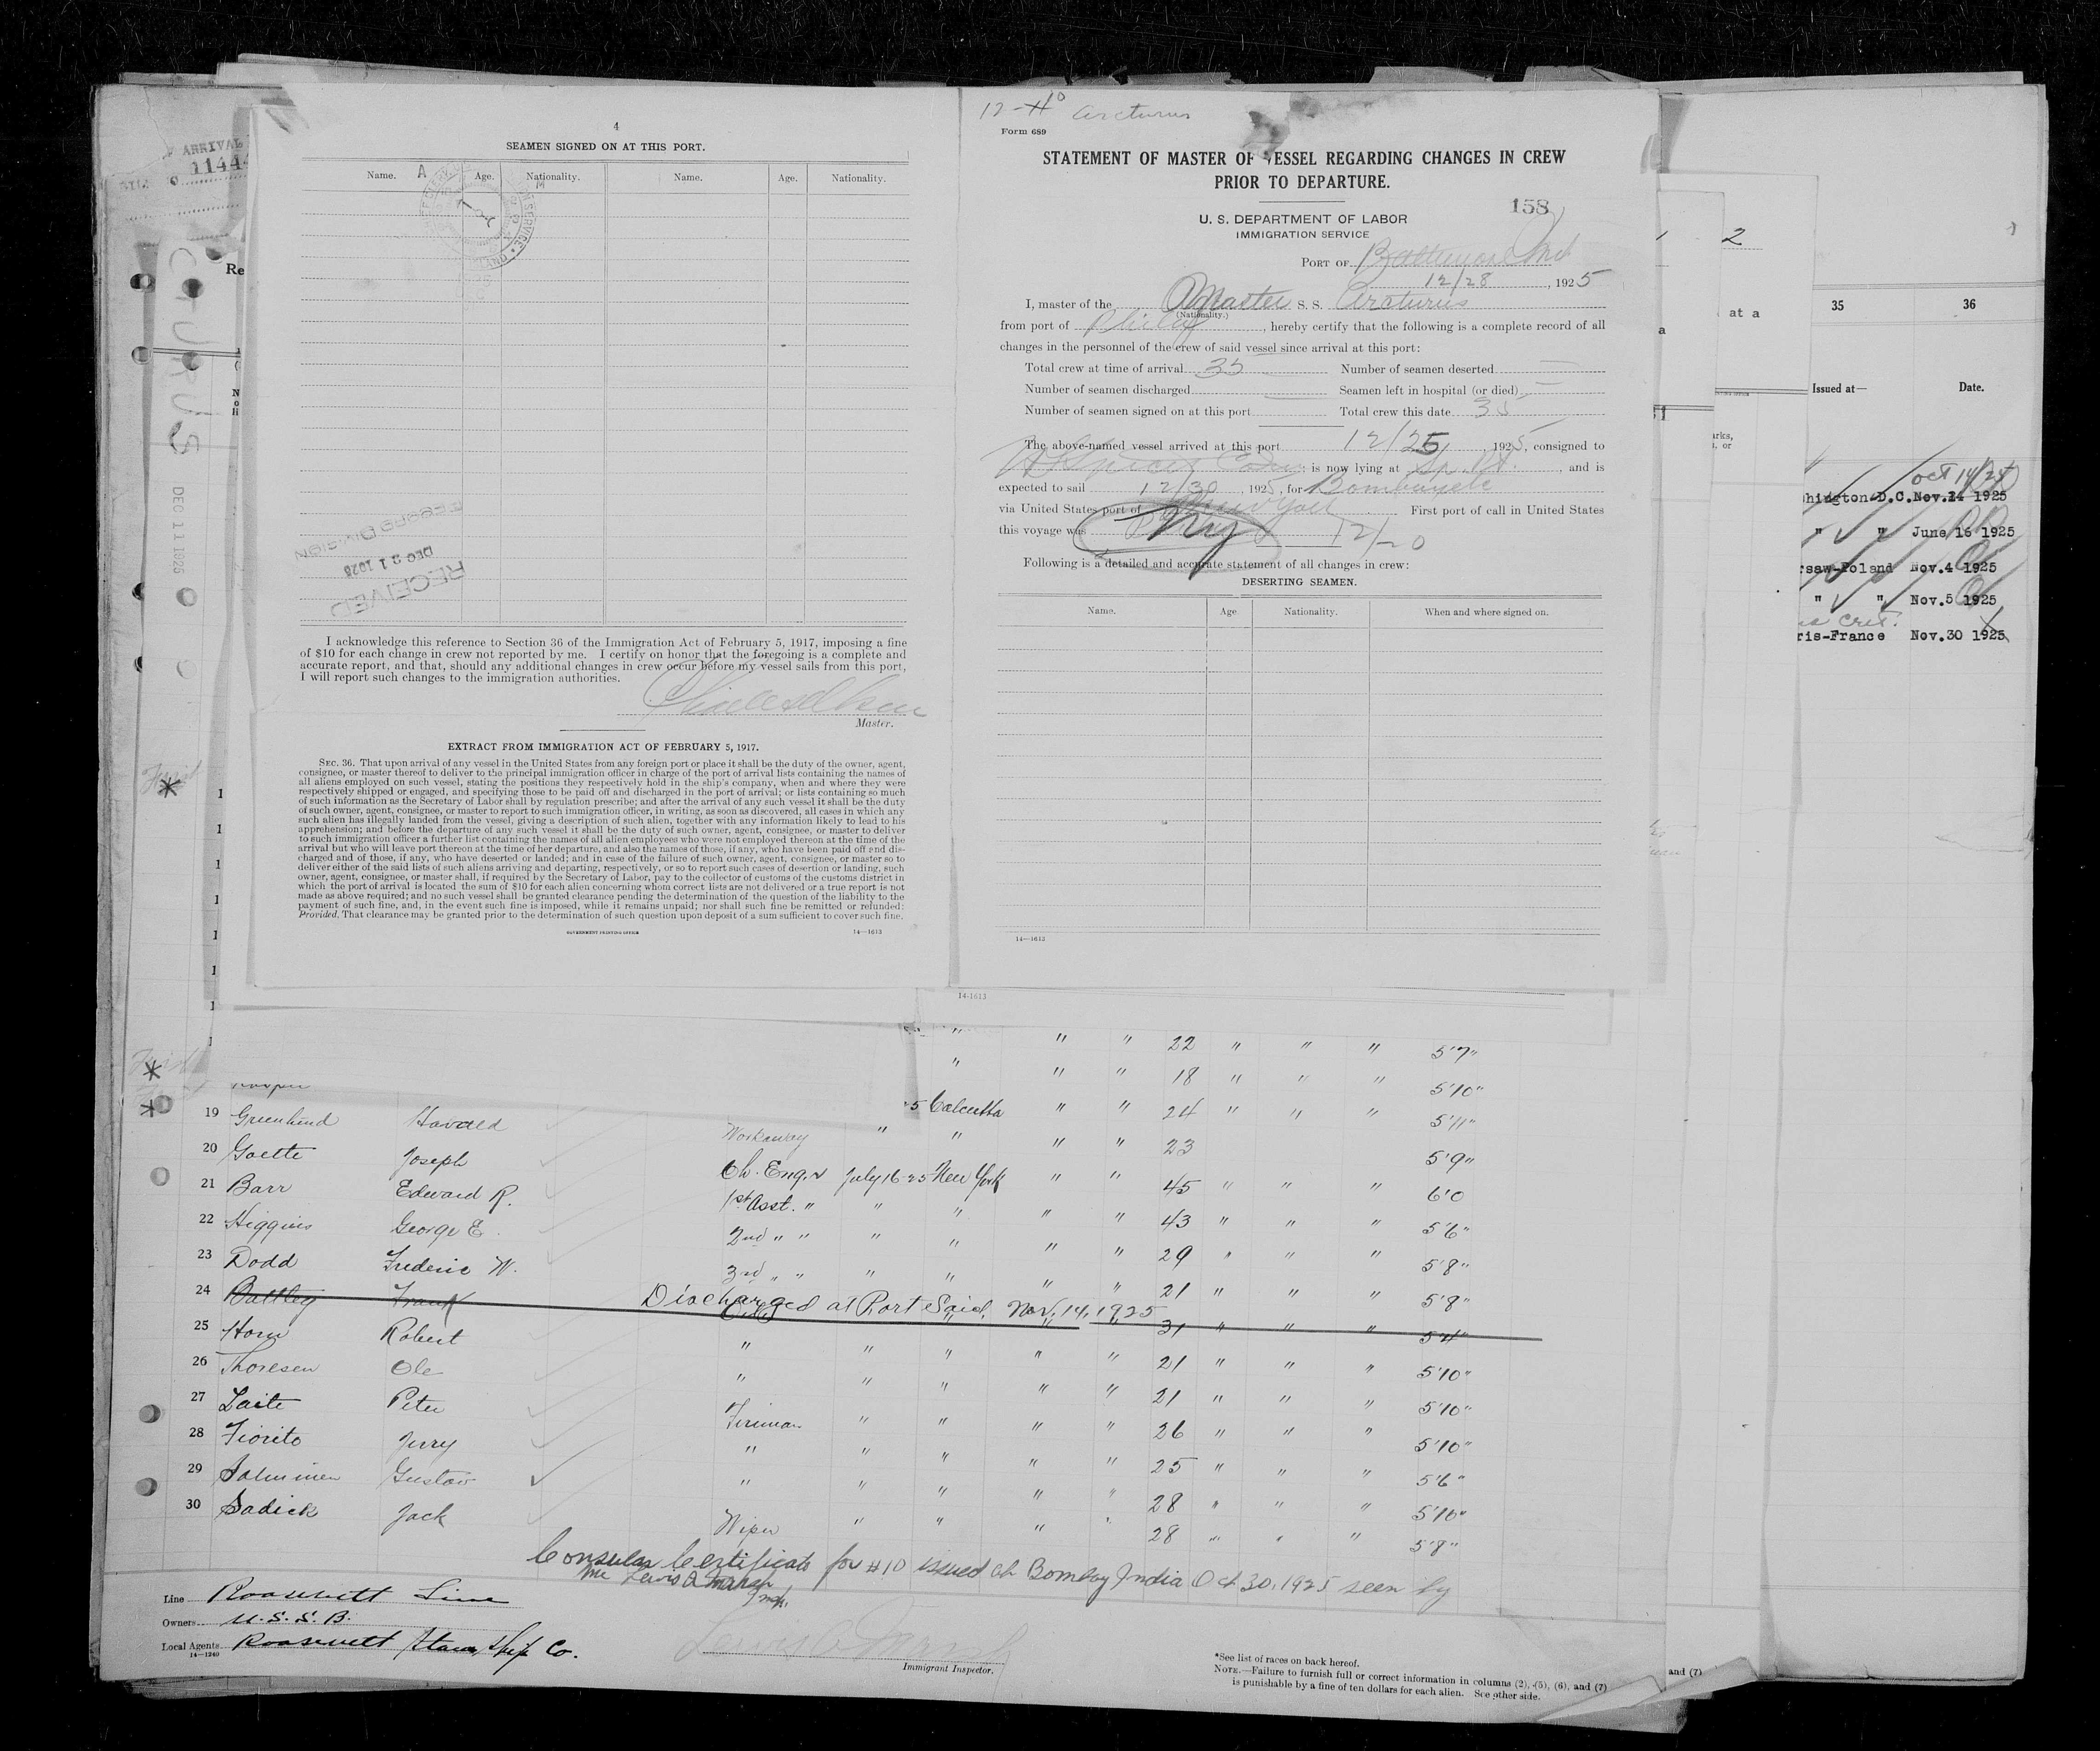 4
SEAMEN SIGNED ON AT THIS PORT.
Name. A Age. Nationality. Name. Age. Nationality.
RECORD DIVISION
DEC 21 1925
RECEIVED
I acknowledge this reference to Section 36 of the Immigration Act of February 5, 1917, imposing a fine
of $10 for each change in crew not reported by me. I certify on honor that the foregoing is a complete and
accurate report, and that, should any additional changes in crew occur before my vessel sails from this port,
I will report such changes to the immigration authorities.
Master.
EXTRACT FROM IMMIGRATION ACT OF FEBRUARY 5, 1917.
SEC. 36. That upon arrival of any vessel in the United States from any foreign port or place it shall be the duty of the owner, agent,
consignee, or master thereof to deliver to the principal immigration officer in charge of the port of arrival lists containing the names of
all aliens employed on such vessel, stating the positions they respectively hold in the ship's company, when and where they were
respectively shipped or engaged, and specifying those to be paid off and discharged in the port of arrival; or lists containing so much
of such information as the Secretary of Labor shall by regulation prescribe; and after the arrival of any such vessel it shall be the duty
of such owner, agent, consignee, or master to report to such immigration officer, in writing, as soon as discovered, all cases in which any
such alien has illegally landed from the vessel, giving a description of such alien, together with any information likely to lead to his
apprehension; and before the departure of any such vessel it shall be the duty of such owner, agent, consignee, or master to deliver
to such immigration officer a further list containing the names of all alien employees who were not employed thereon at the time of the
arrival but who will leave port thereon at the time of her departure, and also the names of those, if any, who have been paid off and dis-
charged and of those, if any, who have deserted or landed; and in case of the failure of such owner, agent, consignee, or master so to
deliver either of the said lists of such aliens arriving and departing, respectively, or so to report such cases of desertion or landing, such
owner, agent, consignee, or master shall, if required by the Secretary of Labor, pay to the collector of customs of the customs district in
which the port of arrival is located the sum of $10 for each alien concerning whom correct lists are not delivered or a true report is not
made as above required; and no such vessel shall be granted clearance pending the determination of the question of the liability to the
payment of such fine, and, in the event such fine is imposed, while it remains unpaid; nor shall such fine be remitted or refunded:
Provided, That clearance may be granted prior to the determination of such question upon deposit of a sum sufficient to cover such fine.
GOVERNMENT PRINTING OFFICE 14—1613
Arcturus
Form 689
STATEMENT OF MASTER OF VESSEL REGARDING CHANGES IN CREW
PRIOR TO DEPARTURE.
158
U. S. DEPARTMENT OF LABOR
IMMIGRATION SERVICE
PORT OF Baltimore Md
12/28, 1925
I, master of the Master S. S. Arcturus
(Nationality.)
from port of Phila, hereby certify that the following is a complete record of all
changes in the personnel of the crew of said vessel since arrival at this port:
Total crew at time of arrival 35 Number of seamen deserted —
Number of seamen discharged — Seamen left in hospital (or died) —
Number of seamen signed on at this port — Total crew this date 35
The above-named vessel arrived at this port 12/25, 1925, consigned to
is now lying at Sp. Pt., and is
expected to sail 12/30, 1925, for
via United States port of New York First port of call in United States
this voyage was 12/20
Following is a detailed and accurate statement of all changes in crew:
DESERTING SEAMEN.
Name. Age. Nationality. When and where signed on.
14—1613
ARRIVAL
11444
DEC 11 1925
2
at a
35 36
Issued at— Date.
Oct 14/25
hington-D.C. Nov.24 1925
" " June 16 1925
rsaw-Poland Nov.4 1925
" " Nov.5 1925
ris-France Nov.30 1925
14-1613
" " " 22 " " " 5'7"
" " " 18 " " " 5'10"
5 Calcutta " " 24 " " " 5'11"
19 Greenlund Harald Workaway " " " " 23 5'9"
20 Goette Joseph Ch. Engr July 16-25 New York " " 45 " " " 6'0
21 Barr Edward R. 1st Asst. " " " " " 43 " " " 5'6"
22 Higgins George E. 2nd " " " " " " 29 " " " 5'8"
23 Dodd Frederic W. 3rd " " " " " " 21 " " " 5'8"
24 Battley Frank Discharged at Port Said. Nov. 14, 1925 31 " " " 5'4"
25 Horn Robert " " " " " 21 " " " 5'10"
26 Thoresen Ole " " " " " 21 " " " 5'10"
27 Laite Peter Fireman " " " " 26 " " " 5'10"
28 Fiorito Jerry " " " " " 25 " " " 5'6"
29 Salminen Gustav " " " " " 28 " " " 5'10"
30 Sadick Jack Wiper " " " " 28 " " " 5'8"
Consular Certificate for #10 issued at Bombay India Oct 30, 1925 seen by
me Lewis A Marsh
Insp.
Line Roosevelt Line
Owners U.S.S.B.
Local Agents Roosevelt Steam Ship Co.
14—1240
Immigrant Inspector.
*See list of races on back hereof.
NOTE.—Failure to furnish full or correct information in columns (2), (5), (6), and (7)
is punishable by a fine of ten dollars for each alien. See other side.
and (7)